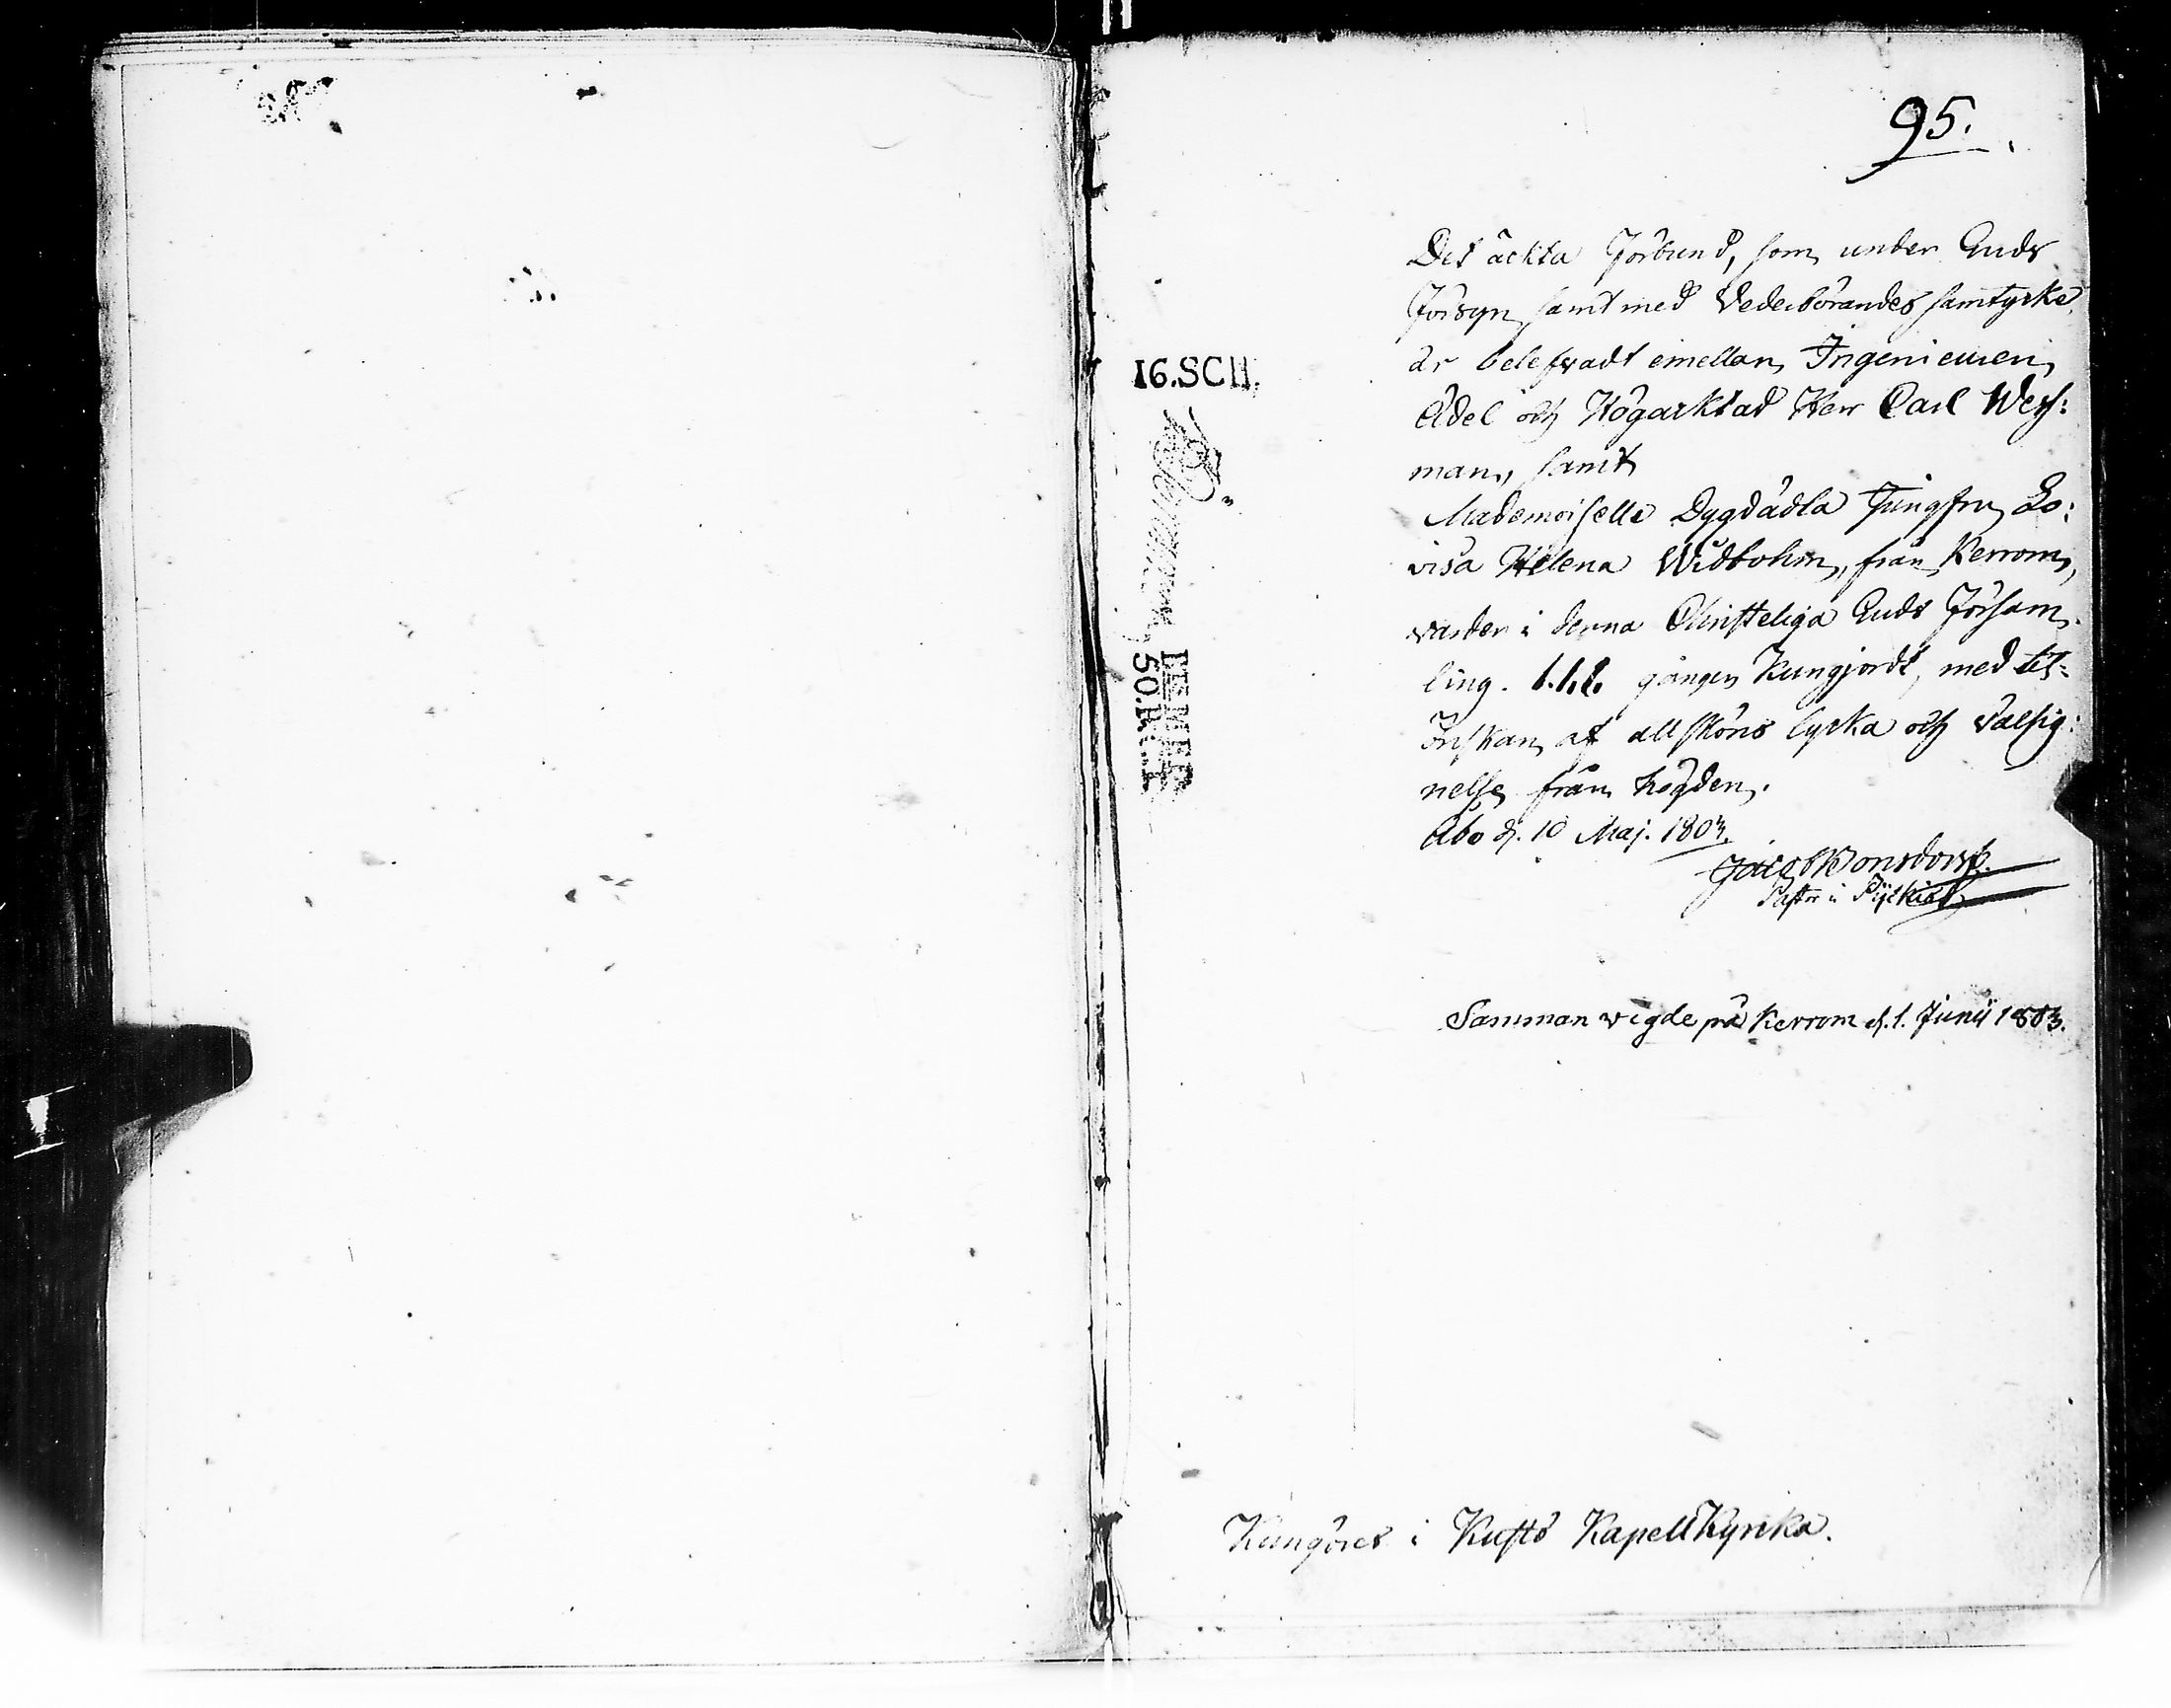 95.
Det ächta Förbund, som under Guds
Försyn samt med Vederbörandes samtycke
är belefvadt emellan Ingenieuren
Ädel och Högacktad Herr Carl Wess:
man, samt
Mademoiselle Dygdädla Jungfru Lo:
visa Helena Widbohm, från Kerrom,
varder i denna Christeliga Guds Församm:
ling. 1.1.1. gången Kungjordt, med til:
önskan af all sköns lycka och välsig:
nelse från högden.
Åbo d. 10 Maj. 1803.
Jacob Bonsdorff.
Pastor i Piikis
Sammanvigde på Kerrom d. 1. Junii 1803.
Kungöres i Kustö Kapell Kyrcka.
16.SCH.